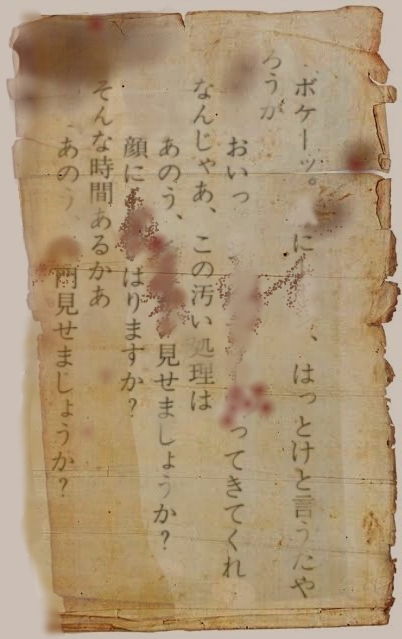 ボケーッ。に、はっとけと言うたや
ろうが
おいっ ってきてくれ
なんじゃあ、この汚い処理は
あのう、見せましょうか?
顔に はりますか?
そんな時間あるかあ
あのう、 見せましょうか?